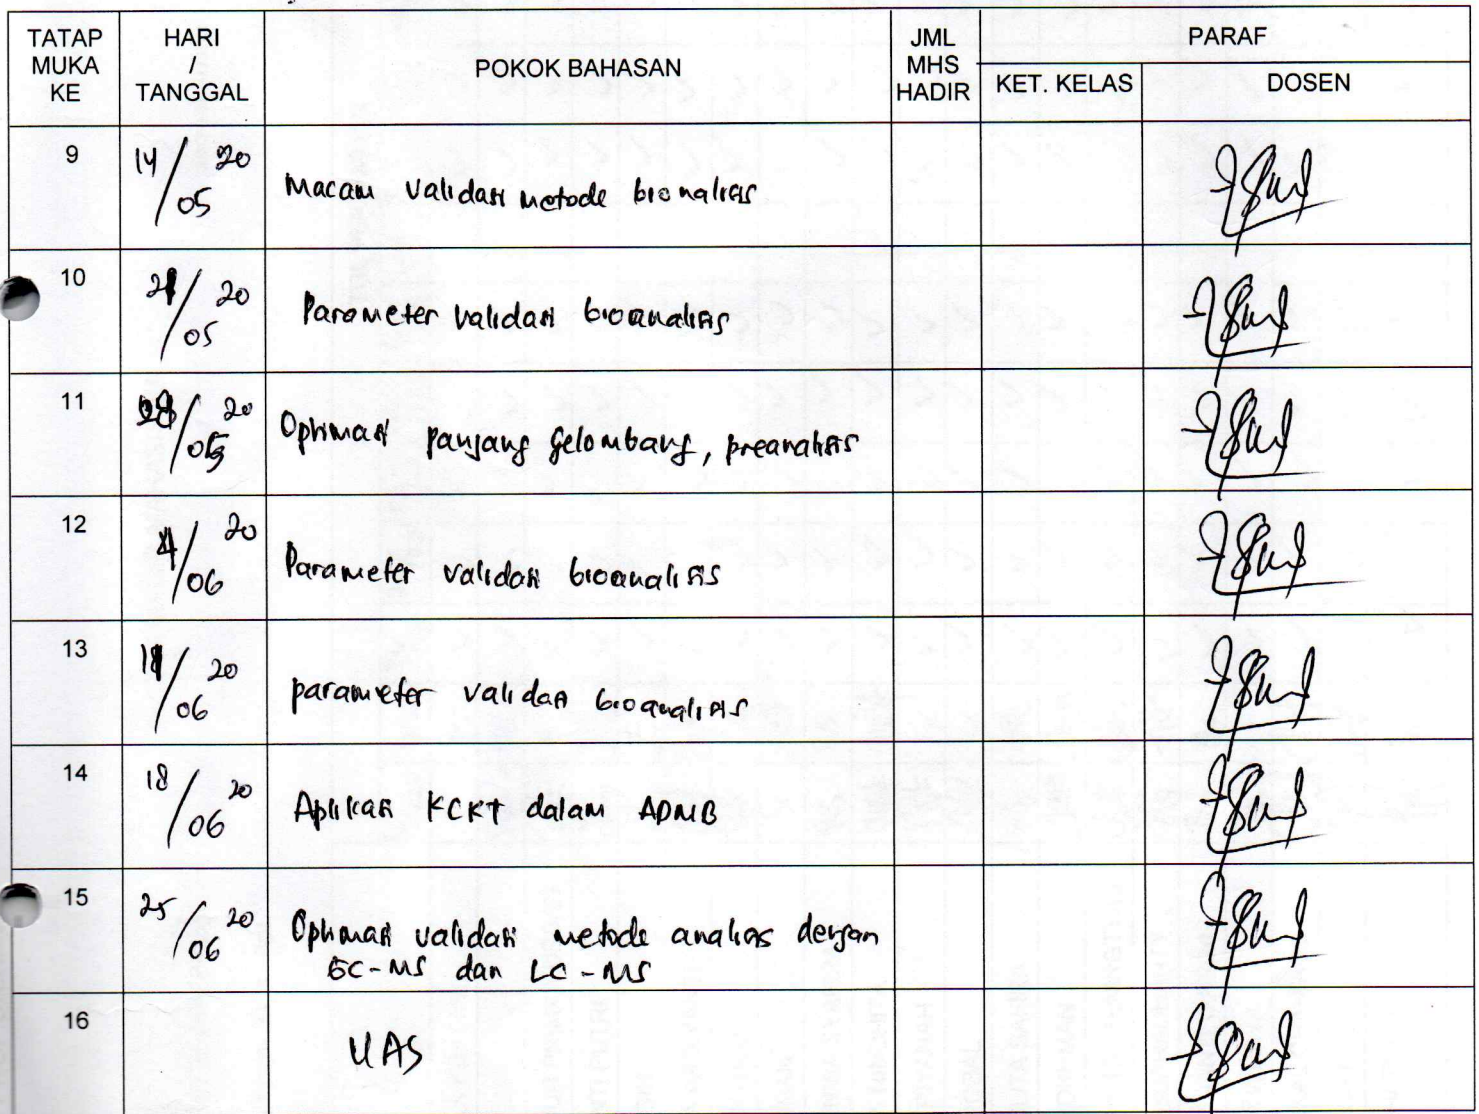 TATAP MUKA KE
HARI / TANGGAL
POKOK BAHASAN
JML MHS HADIR
PARAF
KET. KELAS
DOSEN
9
14/05 20
Macam validasi metode bionalisis
10
21/05 20
Parameter validasi bioanalisis
11
28/05 20
Optimasi panjang gelombang, preanalisis
12
4/06 20
Parameter validasi bioanalisis
13
11/06 20
parameter validasi bioanalisis
14
18/06 20
Aplikasi KCKT dalam ADMB
15
25/06 20
Optimasi validasi metode analisis dengan
GC-MS dan LC-MS
16
UAS